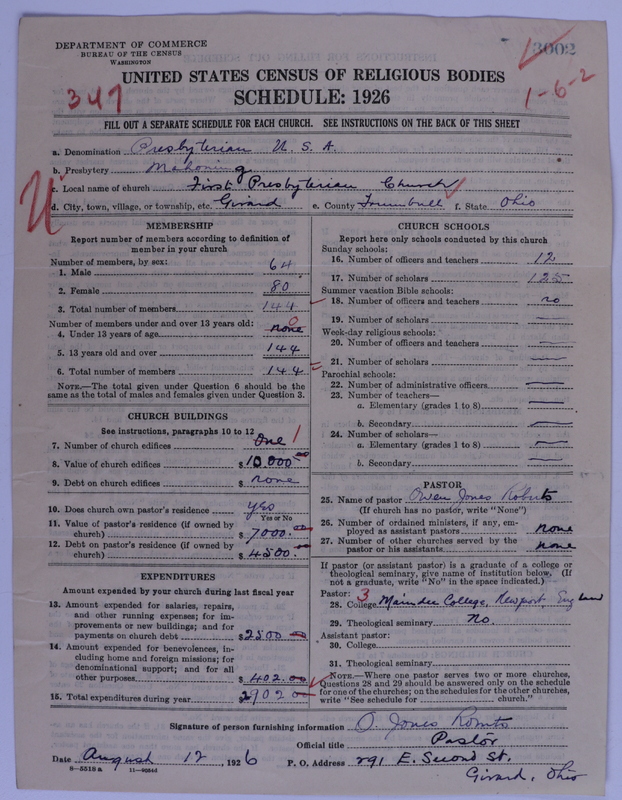 DEPARTMENT OF COMMERCE
BUREAU OF THE CENSUS
WASHINGTON
3002
UNITED STATES CENSUS OF RELIGIOUS BODIES
347
SCHEDULE: 1926
1-6-2
FILL OUT A SEPARATE SCHEDULE FOR EACH CHURCH. SEE INSTRUCTIONS ON THE BACK OF THIS SHEET
a. Denomination Presbyterian U. S. A.
b. Presbytery Mahoning
c. Local name of church First Presbyterian Church
d. City, town, village, or township, etc. Girard e. County Trumbull f. State Ohio
MEMBERSHIP
Report number of members according to definition of member in your church
Number of members, by sex:
1. Male 64
2. Female 80
3. Total number of members 144
Number of members under and over 13 years old:
4. Under 13 years of age none 0
5. 13 years old and over 144
6. Total number of members 144
NOTE.—The total given under Question 6 should be the same as the total of males and females given under Question 3.
CHURCH BUILDINGS
See instructions, paragraphs 10 to 12
7. Number of church edifices One 1
8. Value of church edifices $10.000.00
9. Debt on church edifices $ none
10. Does church own pastor's residence yes
Yes or No
11. Value of pastor's residence (if owned by church) $7000.00
12. Debt on pastor's residence (if owned by church) $4500.00
EXPENDITURES
Amount expended by your church during last fiscal year
13. Amount expended for salaries, repairs, and other running expenses; for improvements or new buildings; and for payments on church debt $2500 00
14. Amount expended for benevolences, including home and foreign missions; for denominational support; and for all other purposes $402.00
15. Total expenditures during year $2902 00
CHURCH SCHOOLS
Report here only schools conducted by this church
Sunday schools:
16. Number of officers and teachers 12
17. Number of scholars 125
Summer vacation Bible schools:
18. Number of officers and teachers no
19. Number of scholars —
Week-day religious schools:
20. Number of officers and teachers —
21. Number of scholars —
Parochial schools:
22. Number of administrative officers —
23. Number of teachers—
a. Elementary (grades 1 to 8) —
b. Secondary —
24. Number of scholars—
a. Elementary (grades 1 to 8) —
b. Secondary —
PASTOR
25. Name of pastor Owen Jones Roberts
(If church has no pastor, write "None")
26. Number of ordained ministers, if any, employed as assistant pastors none
27. Number of other churches served by the pastor or his assistants none
If pastor (or assistant pastor) is a graduate of a college or theological seminary, give name of institution below. (If not a graduate, write "No" in the space indicated.)
Pastor: 3
28. College Maindee College, Newport, England
29. Theological seminary No.
Assistant pastor:
30. College
31. Theological seminary
NOTE.—Where one pastor serves two or more churches, Questions 28 and 29 should be answered only on the schedule for one of the churches; on the schedules for the other churches, write "See schedule for church."
Signature of person furnishing information O. Jones Roberts
Official title Pastor
Date August 12, 1926 P. O. Address 291 E. Second St.
8—5518 a
Girard, Ohio